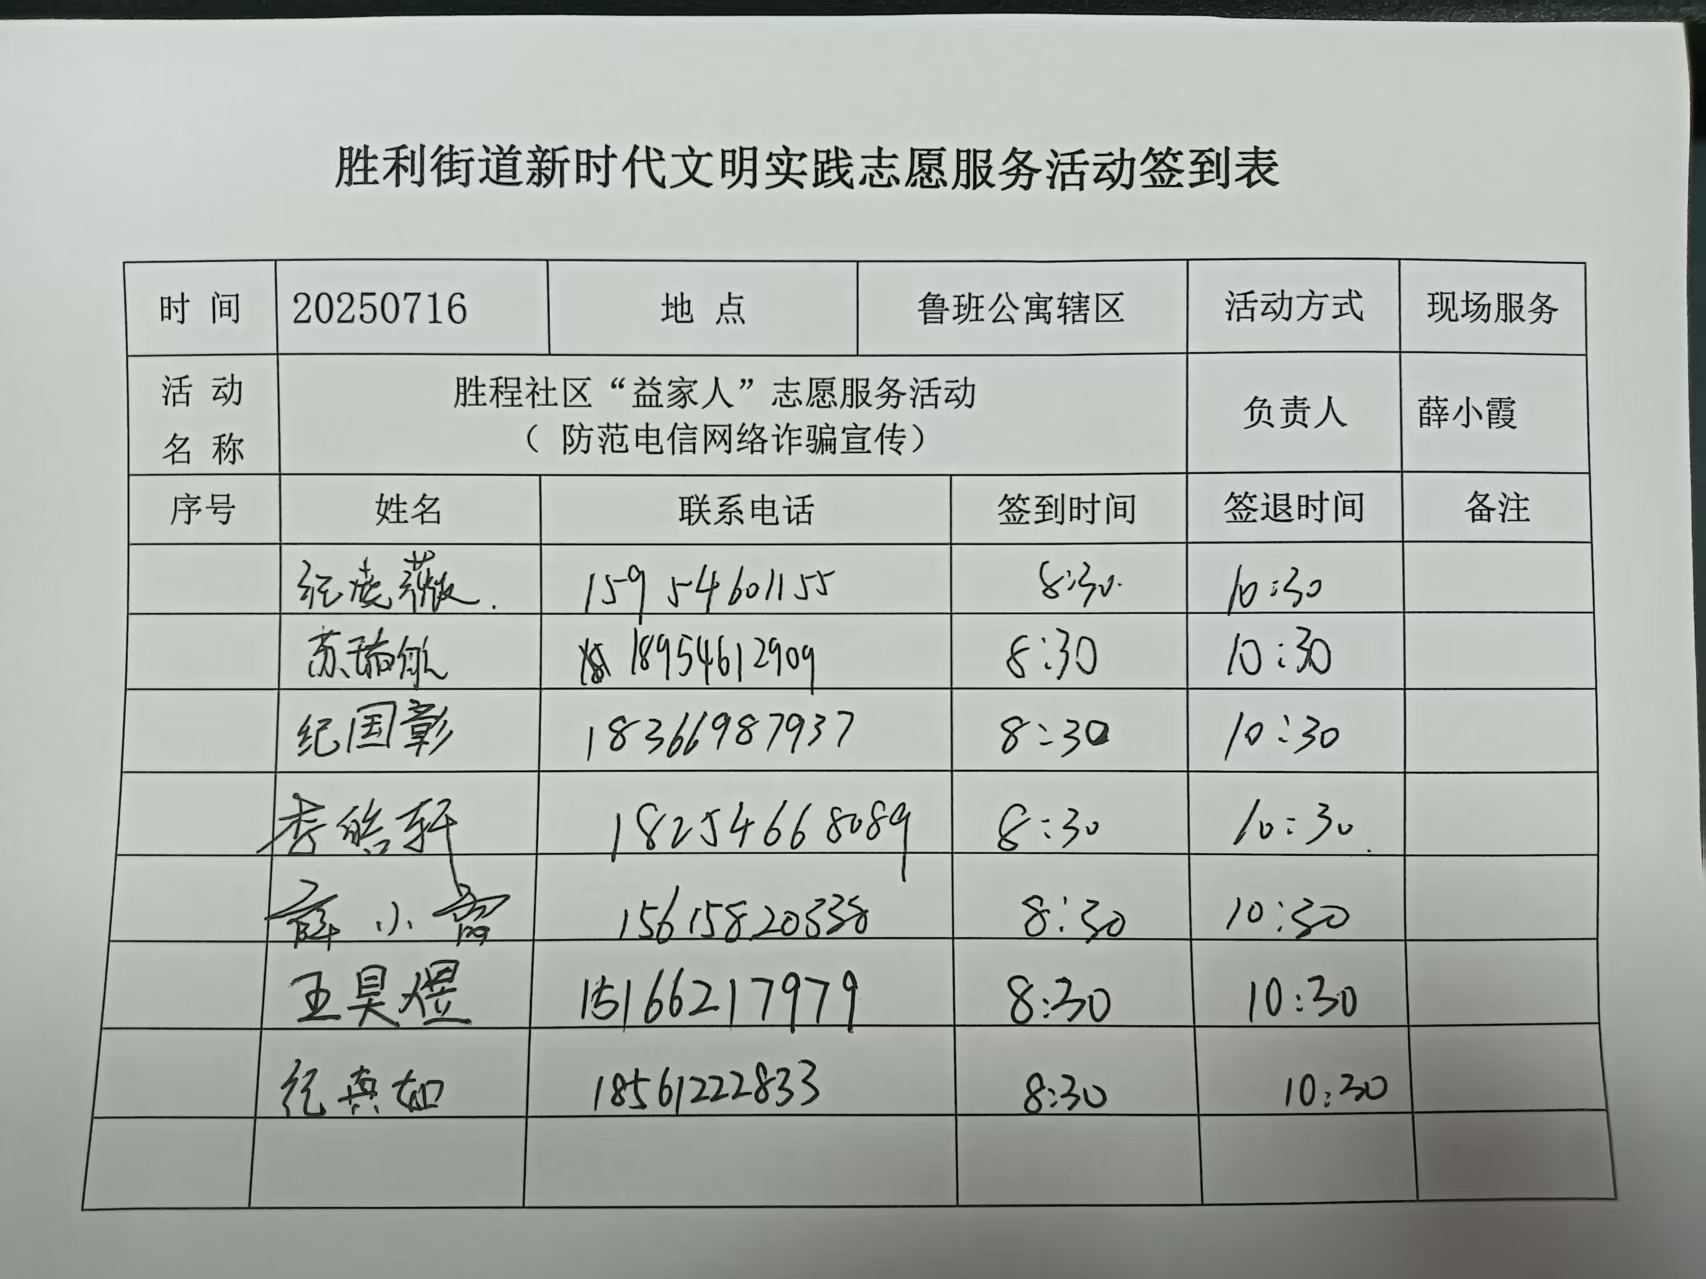 胜利街道新时代文明实践志愿服务活动签到表
时 间 20250716 地 点 鲁班公寓辖区 活动方式 现场服务
活 动 名 称 胜程社区“益家人”志愿服务活动 负责人 薛小霞
（ 防范电信网络诈骗宣传）
序号 姓名 联系电话 签到时间 签退时间 备注
纪凌薇. 15954601155 8:30 10:30
苏瑞航 18954612909 8:30 10:30
纪国彰 18366987937 8:30 10:30
李皓轩 18254668089 8:30 10:30
薛小霞 15615820338 8:30 10:30
王昊煜 15166217979 8:30 10:30
纪真如 18561222833 8:30 10:30